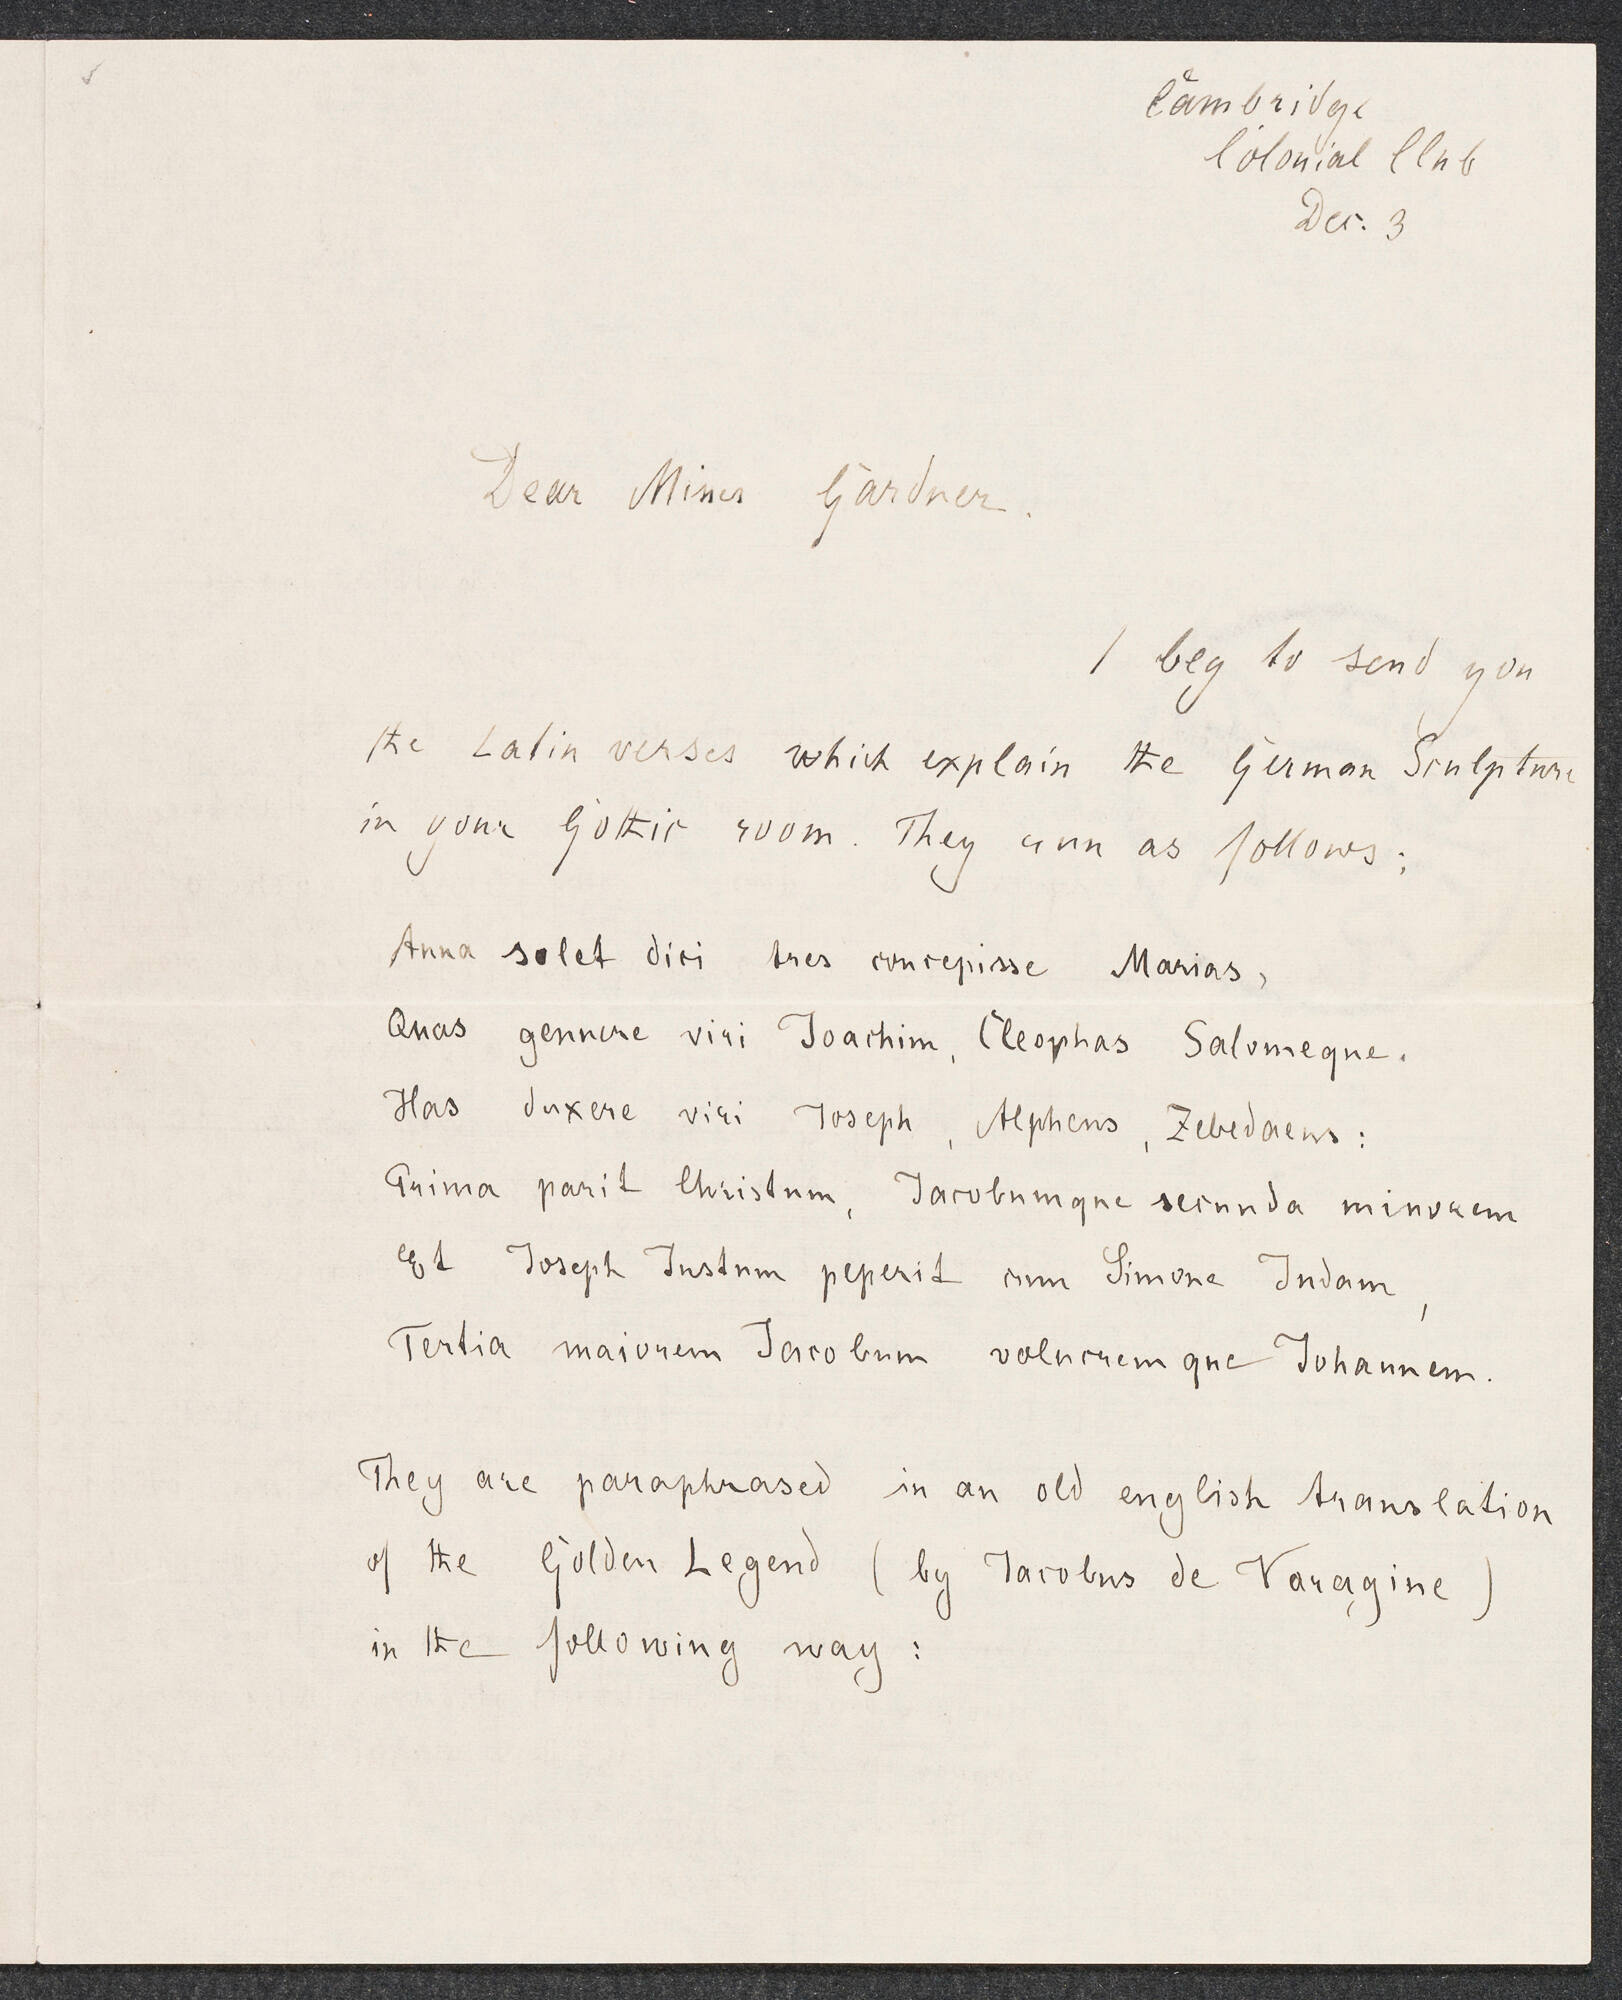 Cambridge
Colonial Club
Dec. 3
Dear Misses Gardner.
I beg to send you
the Latin verses which explain the German Sculpture
in your Gothic room. They run as follows:
Anna solet dici tres concepisse Marias,
Quas genuere viri Joachim, Cleophas Salomeque.
Has duxere viri Joseph, Alpheus, Zebedaeus:
Prima parit Christum, Jacobumque secunda minorem
Et Joseph Justum peperit cum Simone Judam,
Tertia maiorem Jacobum volucremque Johannem.
They are paraphrased in an old english translation
of the Golden Legend (by Jacobus de Varagine)
in the following way: